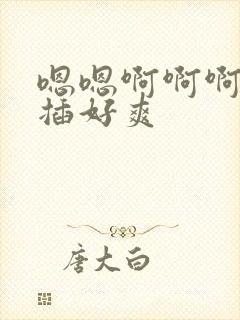 嗯嗯啊啊啊
插好爽
唐大白